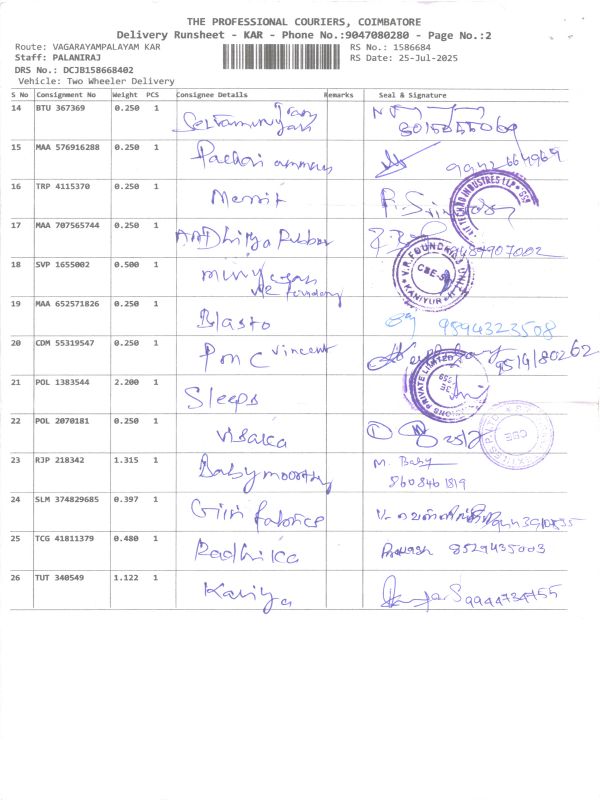 THE PROFESSIONAL COURIERS, COIMBATORE
Delivery Runsheet - KAR - Phone No.:9047080280 - Page No.:2
Route: VAGARAYAMPALAYAM KAR RS No.: 1586684
Staff: PALANIRAJ RS Date: 25-Jul-2025
DRS No.: DCJB158668402
Vehicle: Two Wheeler Delivery
S No Consignment No Weight PCS Consignee Details Remarks Seal & Signature
14 BTU 367369 0.250 1
15 MAA 576916288 0.250 1
16 TRP 4115370 0.250 1 Merrit
17 MAA 707565744 0.250 1 AADhitya Rubber 9487907002
18 SVP 1655002 0.500 1
V.R. FOUNDRIES UNIT
KANIYUR
19 MAA 652571826 0.250 1 Blasto 9894323508
20 CDM 55319547 0.250 1 PMC Vincent
21 POL 1383544 2.200 1 Sleeps
PRIVATE LIMITED
22 POL 2070181 0.250 1 Visaka 25/7
CBE
23 RJP 218342 1.315 1 Babymoorthy M. Baby
8608461819
24 SLM 374829685 0.397 1 Giri fabrics
25 TCG 41811379 0.480 1 Radhika Prakash 8529435003
26 TUT 340549 1.122 1 Kaviya 9944734755